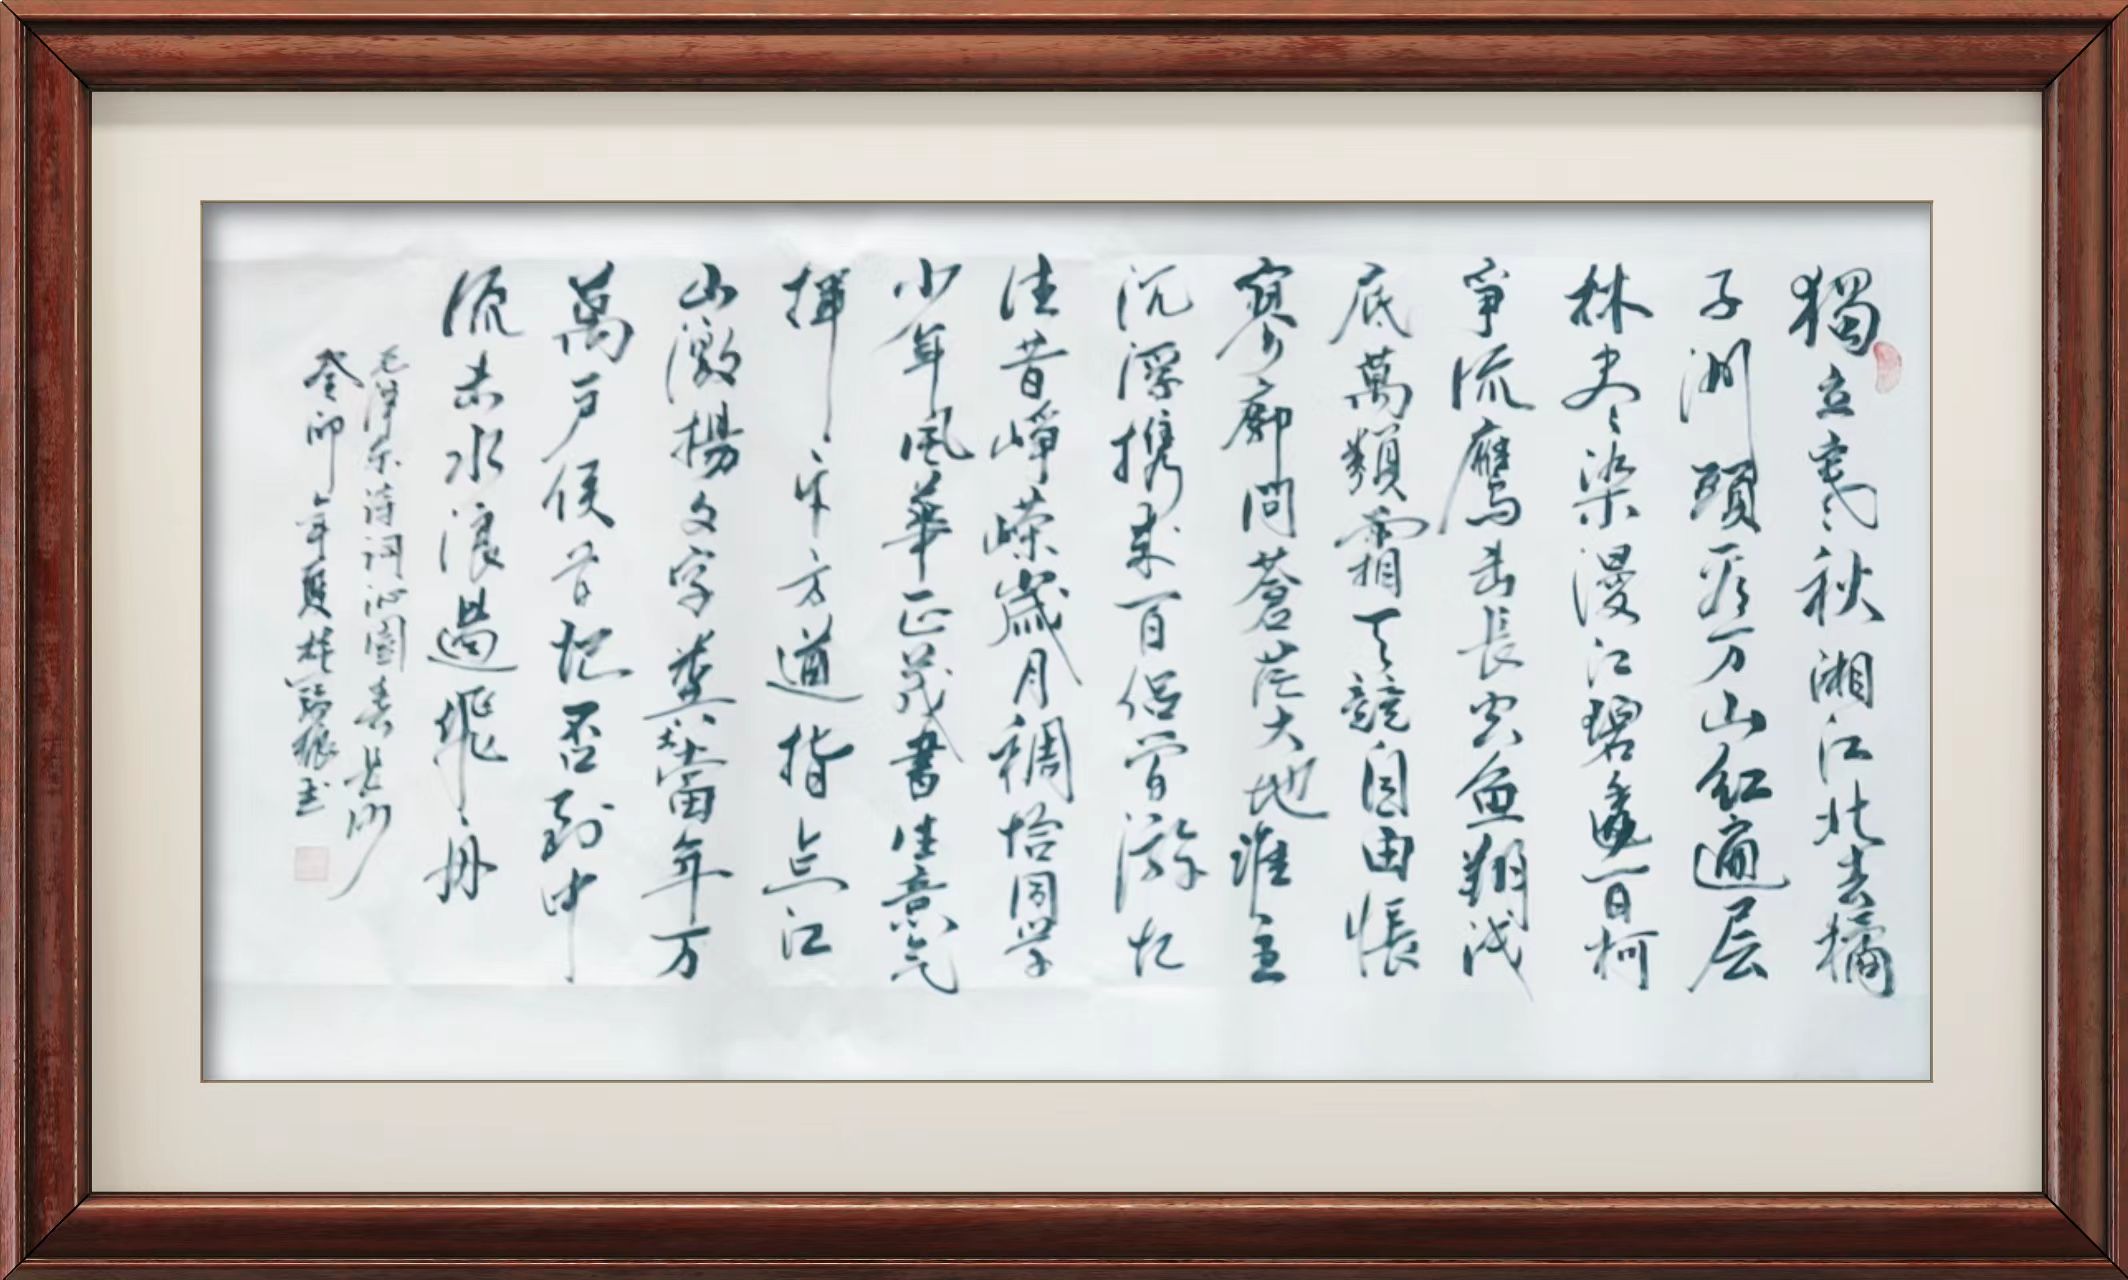 獨立寒秋湘江北去橘
子洲頭看万山红遍层
林尽染漫江碧透百舸
爭流鹰击長空鱼翔浅
底萬類霜天競自由悵
寥廓問蒼茫大地谁主
沉浮携来百侣曾游忆
往昔峥嵘歲月稠恰同学
少年風華正茂書生意气
揮斥方遒指点江
山激揚文字粪土當年万
萬户侯曾记否到中
流击水浪遏飛舟
毛泽东诗词沁園春长沙
癸卯年夏 振书